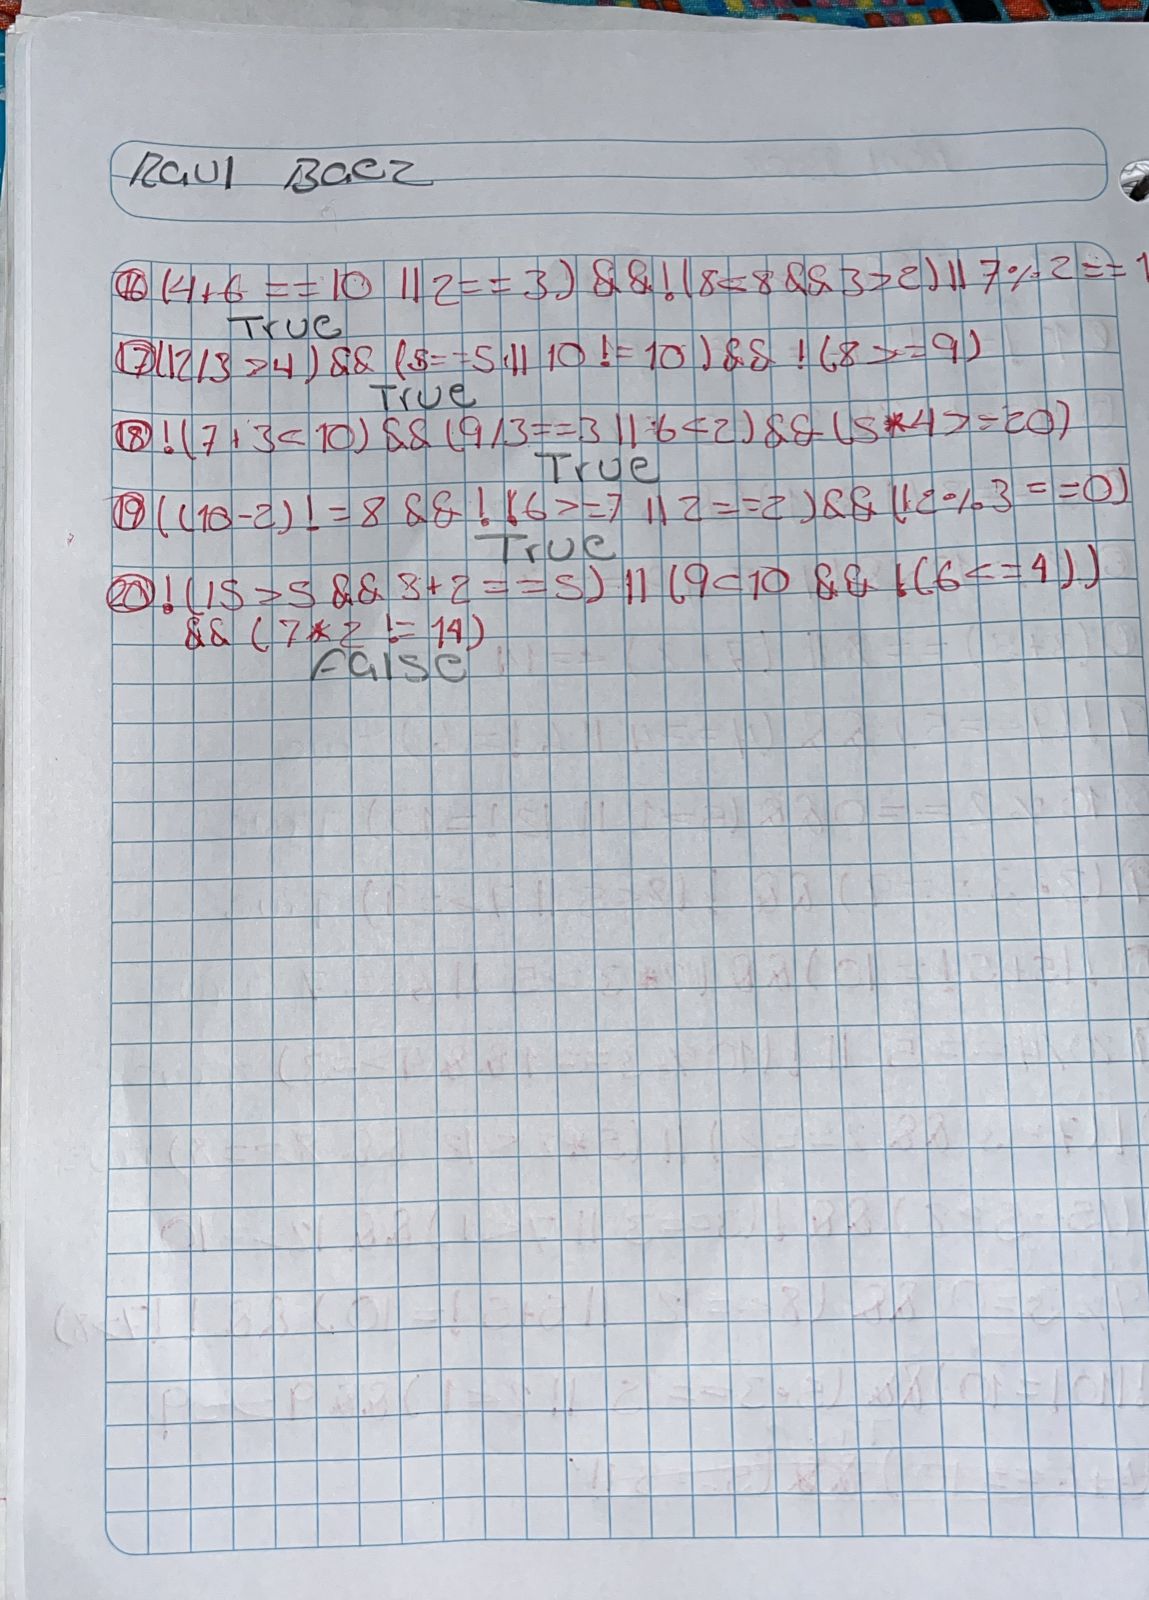 Raul Baez
16 (4+6 ==10 || 2==3) &&!(8<8 && 3>2) || 7%2==1
True
17 (12/3 >4) && (5==5 || 10 != 10) && !(8>=9)
True
18 !(7+3<10) && (9/3==3 || 6<2) && (5*4>=20)
True
19 ((10-2) != 8 && !(6>=7 || 2==2) && (12%3==0)
True
20 !(15>5 && 3+2==5) || (9<10 && !(6<=4))
&& (7*2 != 14)
False